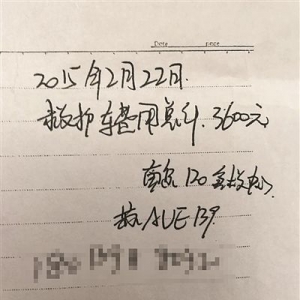 Date
2015年2月22日.
救护车费用总计.3600元
南京120急救中心.
苏AUE139.